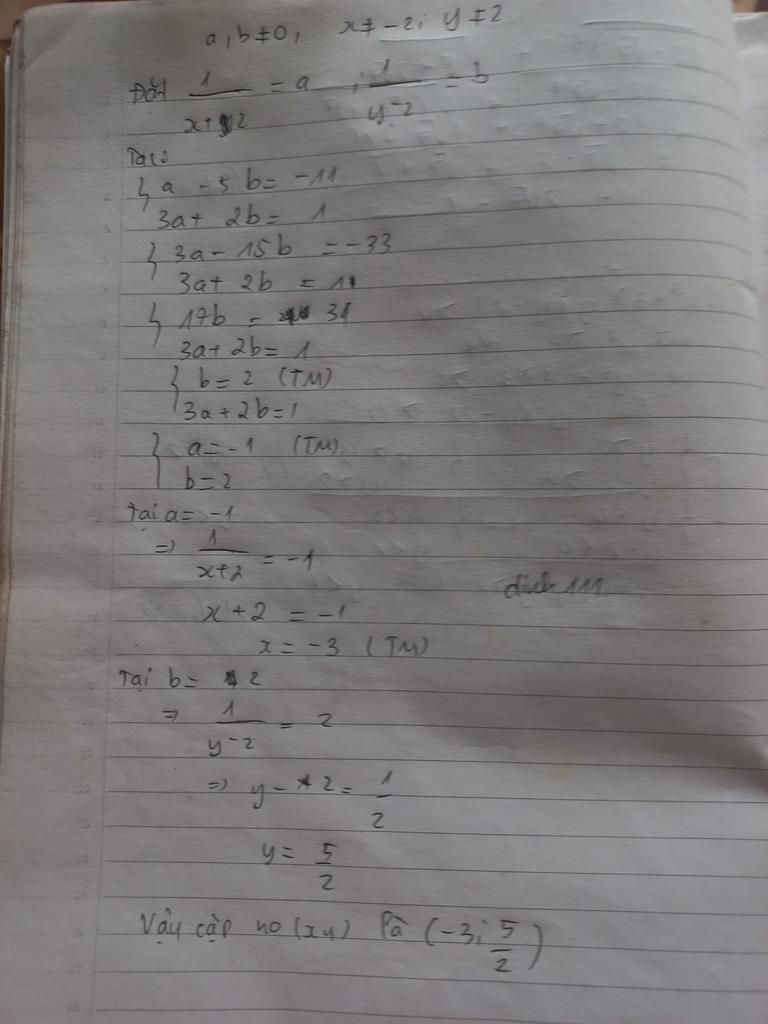 a, b ≠ 0, x ≠ -2; y ≠ 2
Đặt 1/(x+2) = a, 1/(y-2) = b
Ta có
{ a - 5b = -11
3a + 2b = 1
{ 3a - 15b = -33
3a + 2b = 1
{ 17b = 34
3a + 2b = 1
{ b = 2 (TM)
3a + 2b = 1
{ a = -1 (TM)
b = 2
Tại a = -1
=> 1/(x+2) = -1
x + 2 = -1
x = -3 (TM)
Tại b = 2
=> 1/(y-2) = 2
=> y - 2 = 1/2
y = 5/2
Vậy cặp no (xy) là (-3; 5/2)